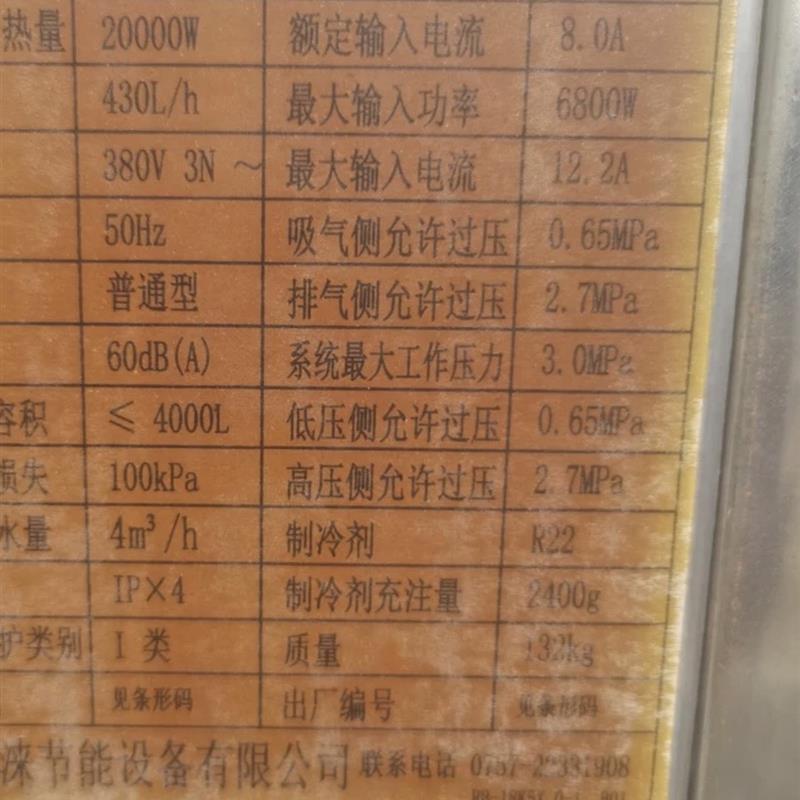 热量 20000W 额定输入电流 8.0A
430L/h 最大输入功率 6800W
380V 3N ～ 最大输入电流 12.2A
50Hz 吸气侧允许过压 0.65MPa
普通型 排气侧允许过压 2.7MPa
60dB(A) 系统最大工作压力 3.0MPa
容积 ≤ 4000L 低压侧允许过压 0.65MPa
损失 100kPa 高压侧允许过压 2.7MPa
水量 4m³/h 制冷剂 R22
IP×4 制冷剂充注量 2400g
护类别 I 类 质量 132kg
见条形码 出厂编号 见条形码
涞节能设备有限公司 联系电话 0757-22331908